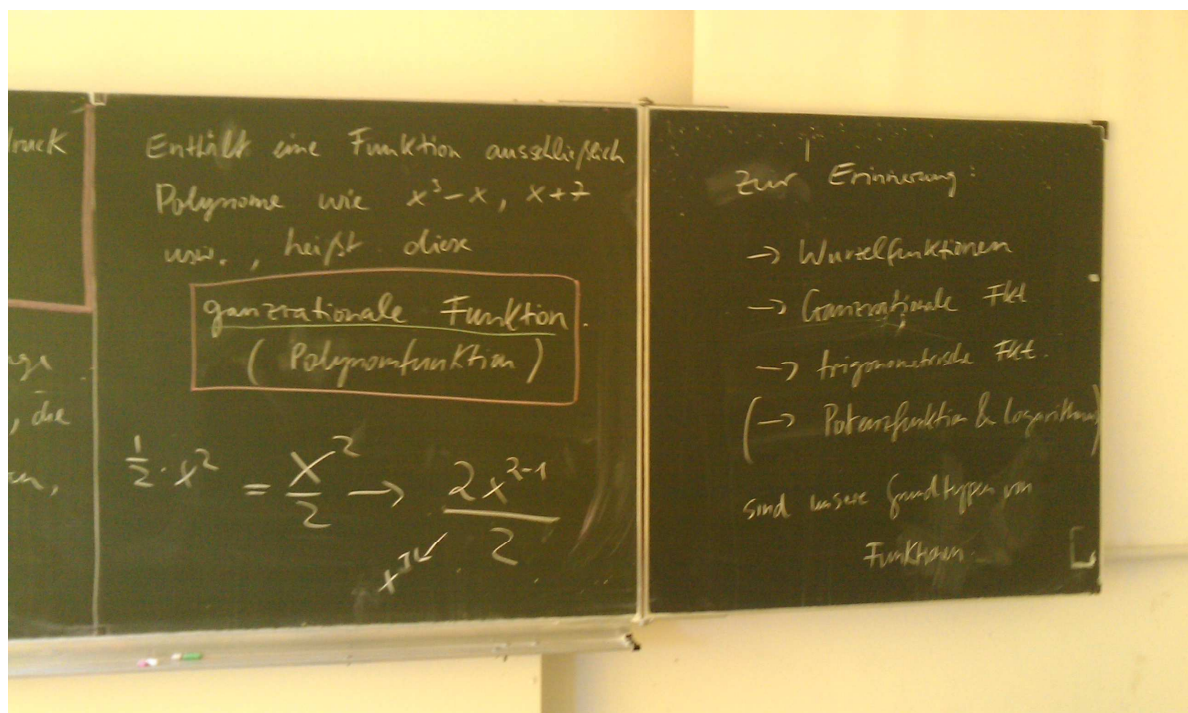 druck
, die
Enthält eine Funktion ausschließlich
Polynome wie x³-x, x+7
usw., heißt diese
ganzrationale Funktion.
(Polynomfunktion)
1/2 · x² = x²/2 → 2x²⁻¹/2
Zur Erinnerung:
→ Wurzelfunktionen
→ Ganzrationale Fkt
→ trigonometrische Fkt.
(→ Potenzfunktion & Logarithmus)
sind unsere Grundtypen von
Funktionen.